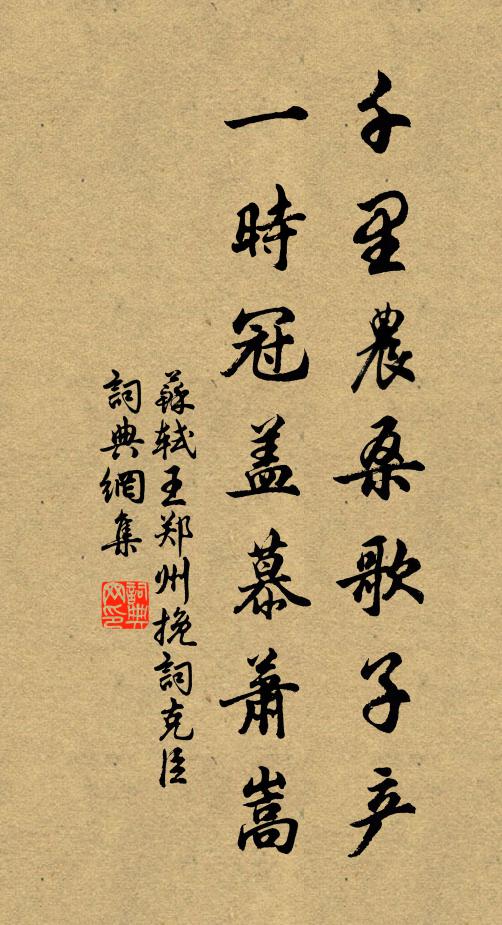 千里農桑歌子产
一時冠盖慕蕭嵩
蘇軾王郑州挽詞克臣
詞典網集
詞典网印